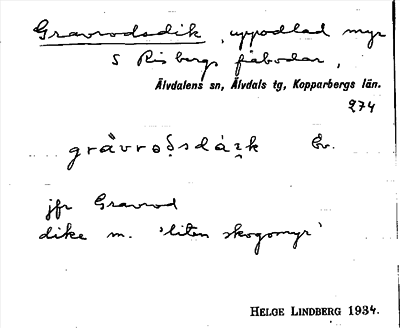 Gravrodsdik, uppodlad myr
S Risbergs fäbodar,
Älvdalens sn, Älvdals tg, Kopparbergs län.
274
Ev.
jfr Gravrod
dike m. 'liten skogsmyr'
HELGE LINDBERG 1934.